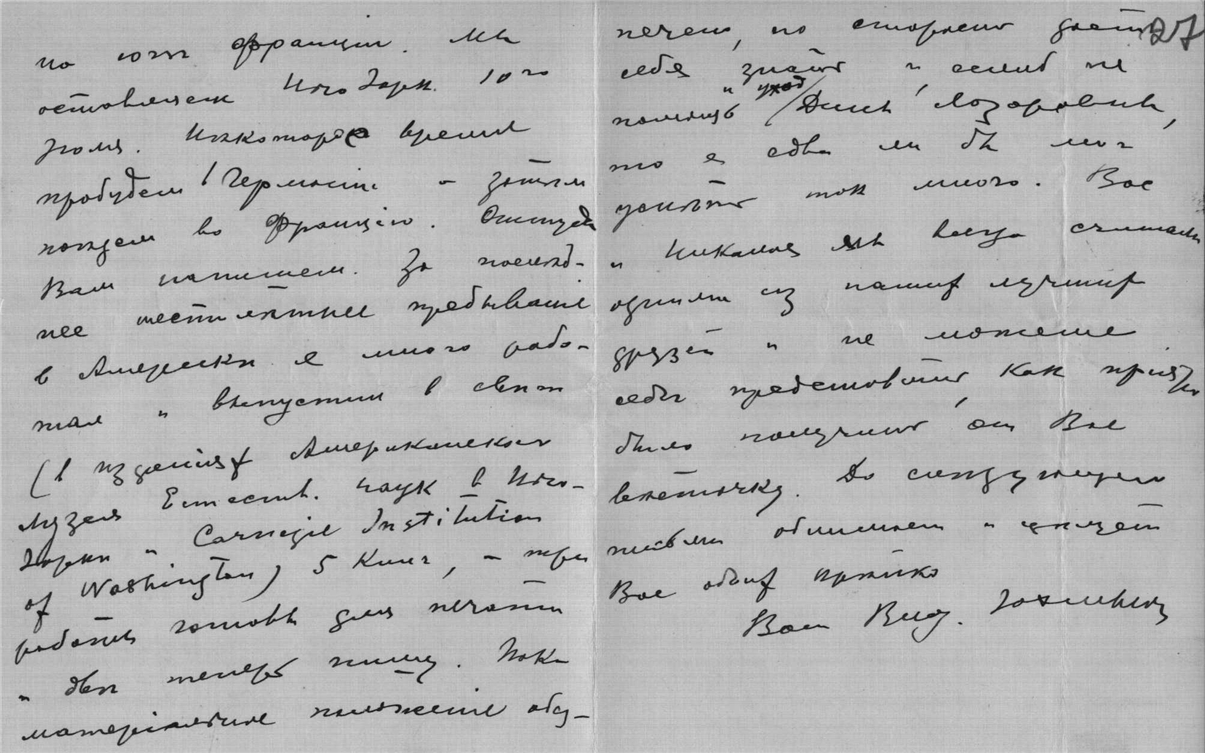 на югѣ Франціи. Мы
оставляемъ Нью Іоркъ 10го
Іюля. Нѣкоторое время
пробудем в Германіи и затѣм
поѣдем во Францію. Оттуда
Вам напишем. За послѣд-
нее шестилѣтнее пребываніе
в Америкѣ я много рабо-
тал и выпустил в свѣт
(в изданіях Американскаго
Музея Естеств. Наук в Нью-
Іоркѣ и Carnegie Institution
of Washington) 5 книг, три
работы готовы для печати
и двѣ теперь пишу. Пока
матеріальное положеніе обез-
27
печено, но старость дает
себя знать и, еслиб не
помощь и уход Дины Лазаровны,
то я едва ли бы мог
успѣть так много. Вас
и Николая мы всегда считали
одними из наших лучших
друзей и не можете
себѣ представить, как пріятно
было получить от Вас
вѣсточку. До слѣдующаго
письма обнимаем и цѣлуем
Вас обоих крѣпко
Ваш Влад. Іохельсон